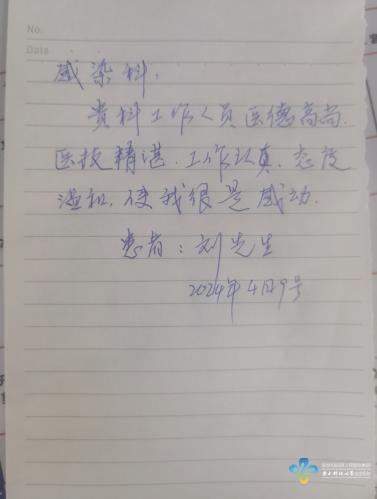 No.
Date
感染科：
贵科工作人员医德高尚、
医技精湛、工作认真、态度
温和，使我很是感动.
患者：刘先生
2024年4月9号